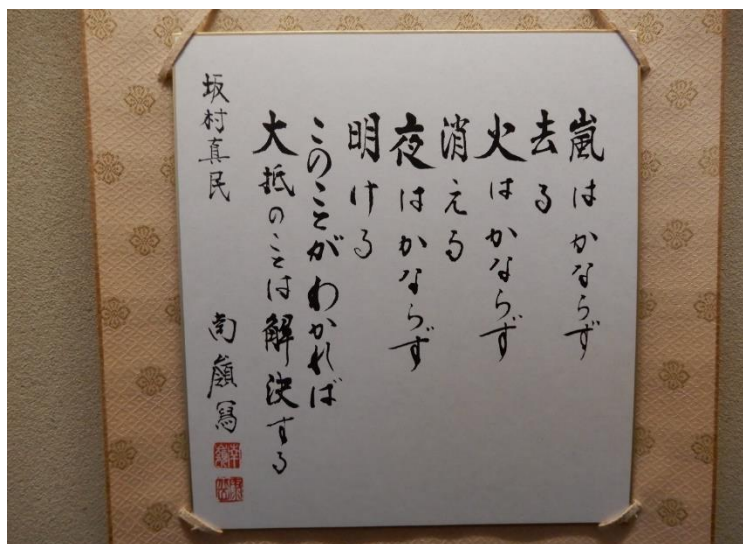 嵐はかならず
去る
火はかならず
消える
夜はかならず
明ける
このことがわかれば
大抵のことは解決する
坂村真民
南嶺写